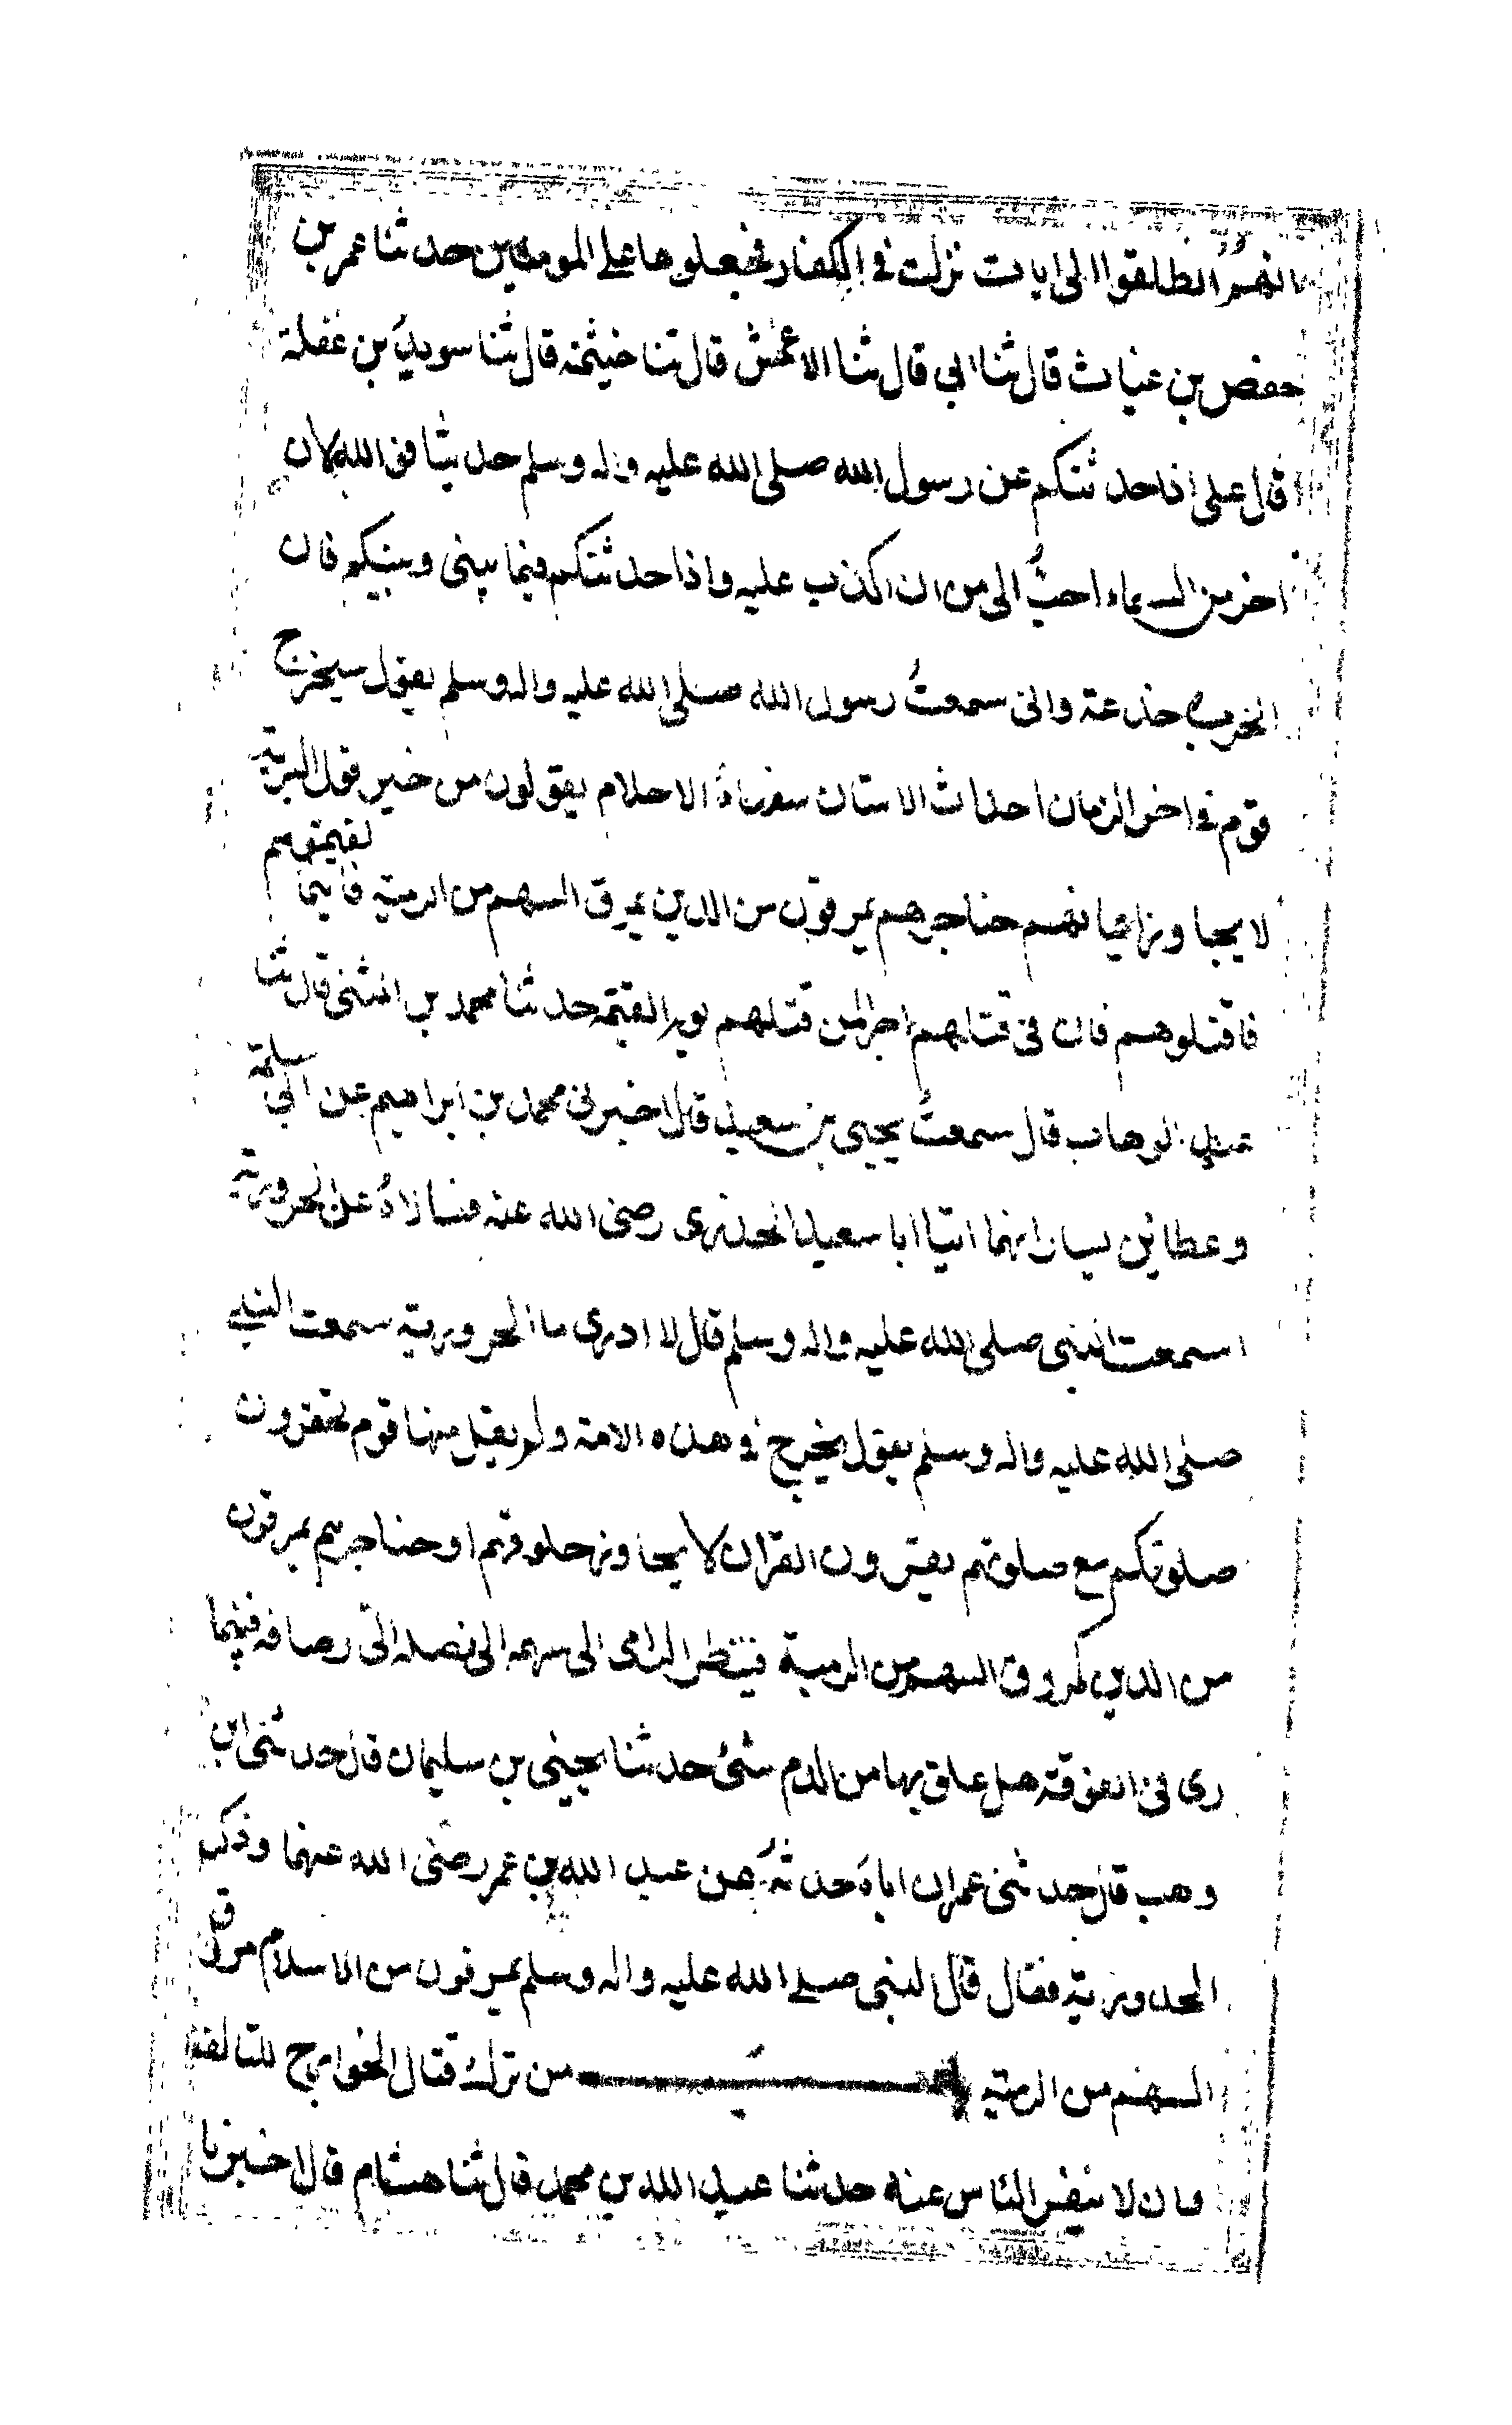 انهم انطلقوا الى ايات نزلت في الكفار فجعلوها على المومنين حدثنا عمر بن
حفص بن غياث قال ثنا ابي قال ثنا الاعمش قال ثنا خيثمة قال ثنا سويد بن غفلة
قال على اذا حدثتكم عن رسول الله صلى الله عليه واله وسلم حديثا فوالله لان
اخر من السماء احب الى من ان اكذب عليه واذا حدثتكم فيما بيني وبينكم فان
الحرب خدعة واني سمعت رسول الله صلى الله عليه واله وسلم يقول سيخرج
قوم في اخر الزمان احداث الاسنان سفهاء الاحلام يقولون من خير قول البرية
لا يجاوز ايمانهم حناجرهم يمرقون من الدين يمرق السهم من الرمية فاينما لقيتموهم
فاقتلوهم فان في قتلهم اجرا لمن قتلهم يوم القيمة حدثنا محمد بن المثنى قال ثنا
عبد الوهاب قال سمعت يحيى بن سعيد قال اخبرني محمد بن ابراهيم عن ابي سلمة
وعطا بن يسار انهما اتيا ابا سعيد الخدري رضى الله عنه فسالاه عن الحرورية
اسمعت النبي صلى الله عليه واله وسلم قال لا ادرى ما الحرورية سمعت النبي
صلى الله عليه واله وسلم يقول يخرج في هذه الامة ولم يقل منها قوم تحقرون
صلوتكم مع صلوتهم يقرون القران لا يجاوز حلوقهم او حناجرهم يمرقون
من الدين كمروق السهم من الرمية فينظر الرامى الى سهمه الى نصله الى رصافه فيتما
رى في الفوقة هل علق بها من الدم شئ حدثنا يحيى بن سليمان قال حدثنى ابن
وهب قال حدثنى عمر ان اباه حدثه عن عبد الله بن عمر رضى الله عنهما وذكر
الحرورية فقال قال النبي صلى الله عليه واله وسلم يمرقون من الاسلام مروق
السهم من الرمية باب من ترك قتال الخوارج للتالف
وان لا ينفر الناس عنه حدثنا عبد الله بن محمد قال ثنا هشام قال اخبرنا